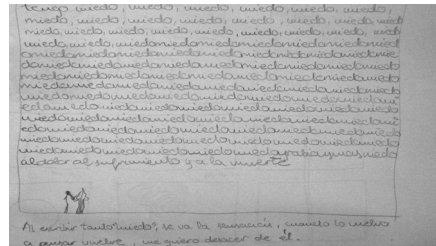 tengo miedo, miedo, miedo, miedo, miedo, miedo,
miedo, miedo, miedo, miedo, miedo, miedo, miedo, miedo
miedo, miedo, miedo, miedo, miedo, miedo, miedo, miedo
miedo, miedo, miedomiedomiedomiedomiedomied
omiedomiedomiedomiedomiedomiedomiedomie
domiedomiedomiedomiedomiedomiedomiedo
miedomiedomiedomiedomiedomiedomiedomiedo
miedomiedomiedomiedomiedomiedomiedomiedo
miedomiedomiedomiedomiedomiedomiedomi
edomiedomiedomiedomiedomiedomiedomiedo
miedomiedomiedomiedomiedomiedomiedomi
edomiedomiedomiedomiedomiedomiedomiedo
miedomiedomiedomiedomiedorabiaymasmiedo
al dolor al sufrimiento y a la muerte
Al escribir tanto "miedo", se va la sensación, cuando lo vuelvo
a pensar vuelve, me quiero deshacer de él.